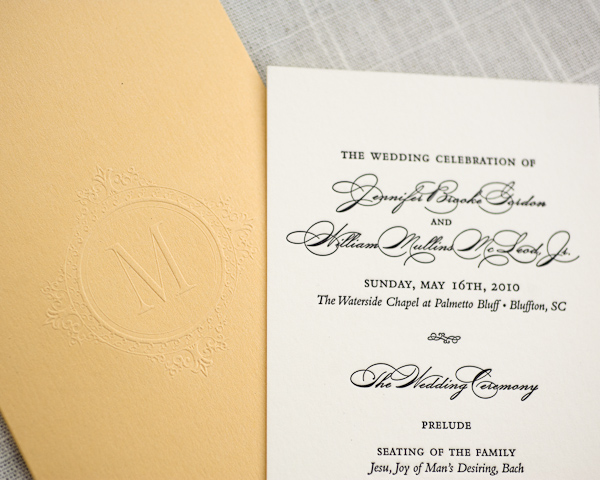 M
THE WEDDING CELEBRATION OF
Jennifer Brooke Gordon
AND
William Mullins McLeod, Jr.
SUNDAY, MAY 16TH, 2010
The Waterside Chapel at Palmetto Bluff • Bluffton, SC
The Wedding Ceremony
PRELUDE
SEATING OF THE FAMILY
Jesu, Joy of Man's Desiring, Bach